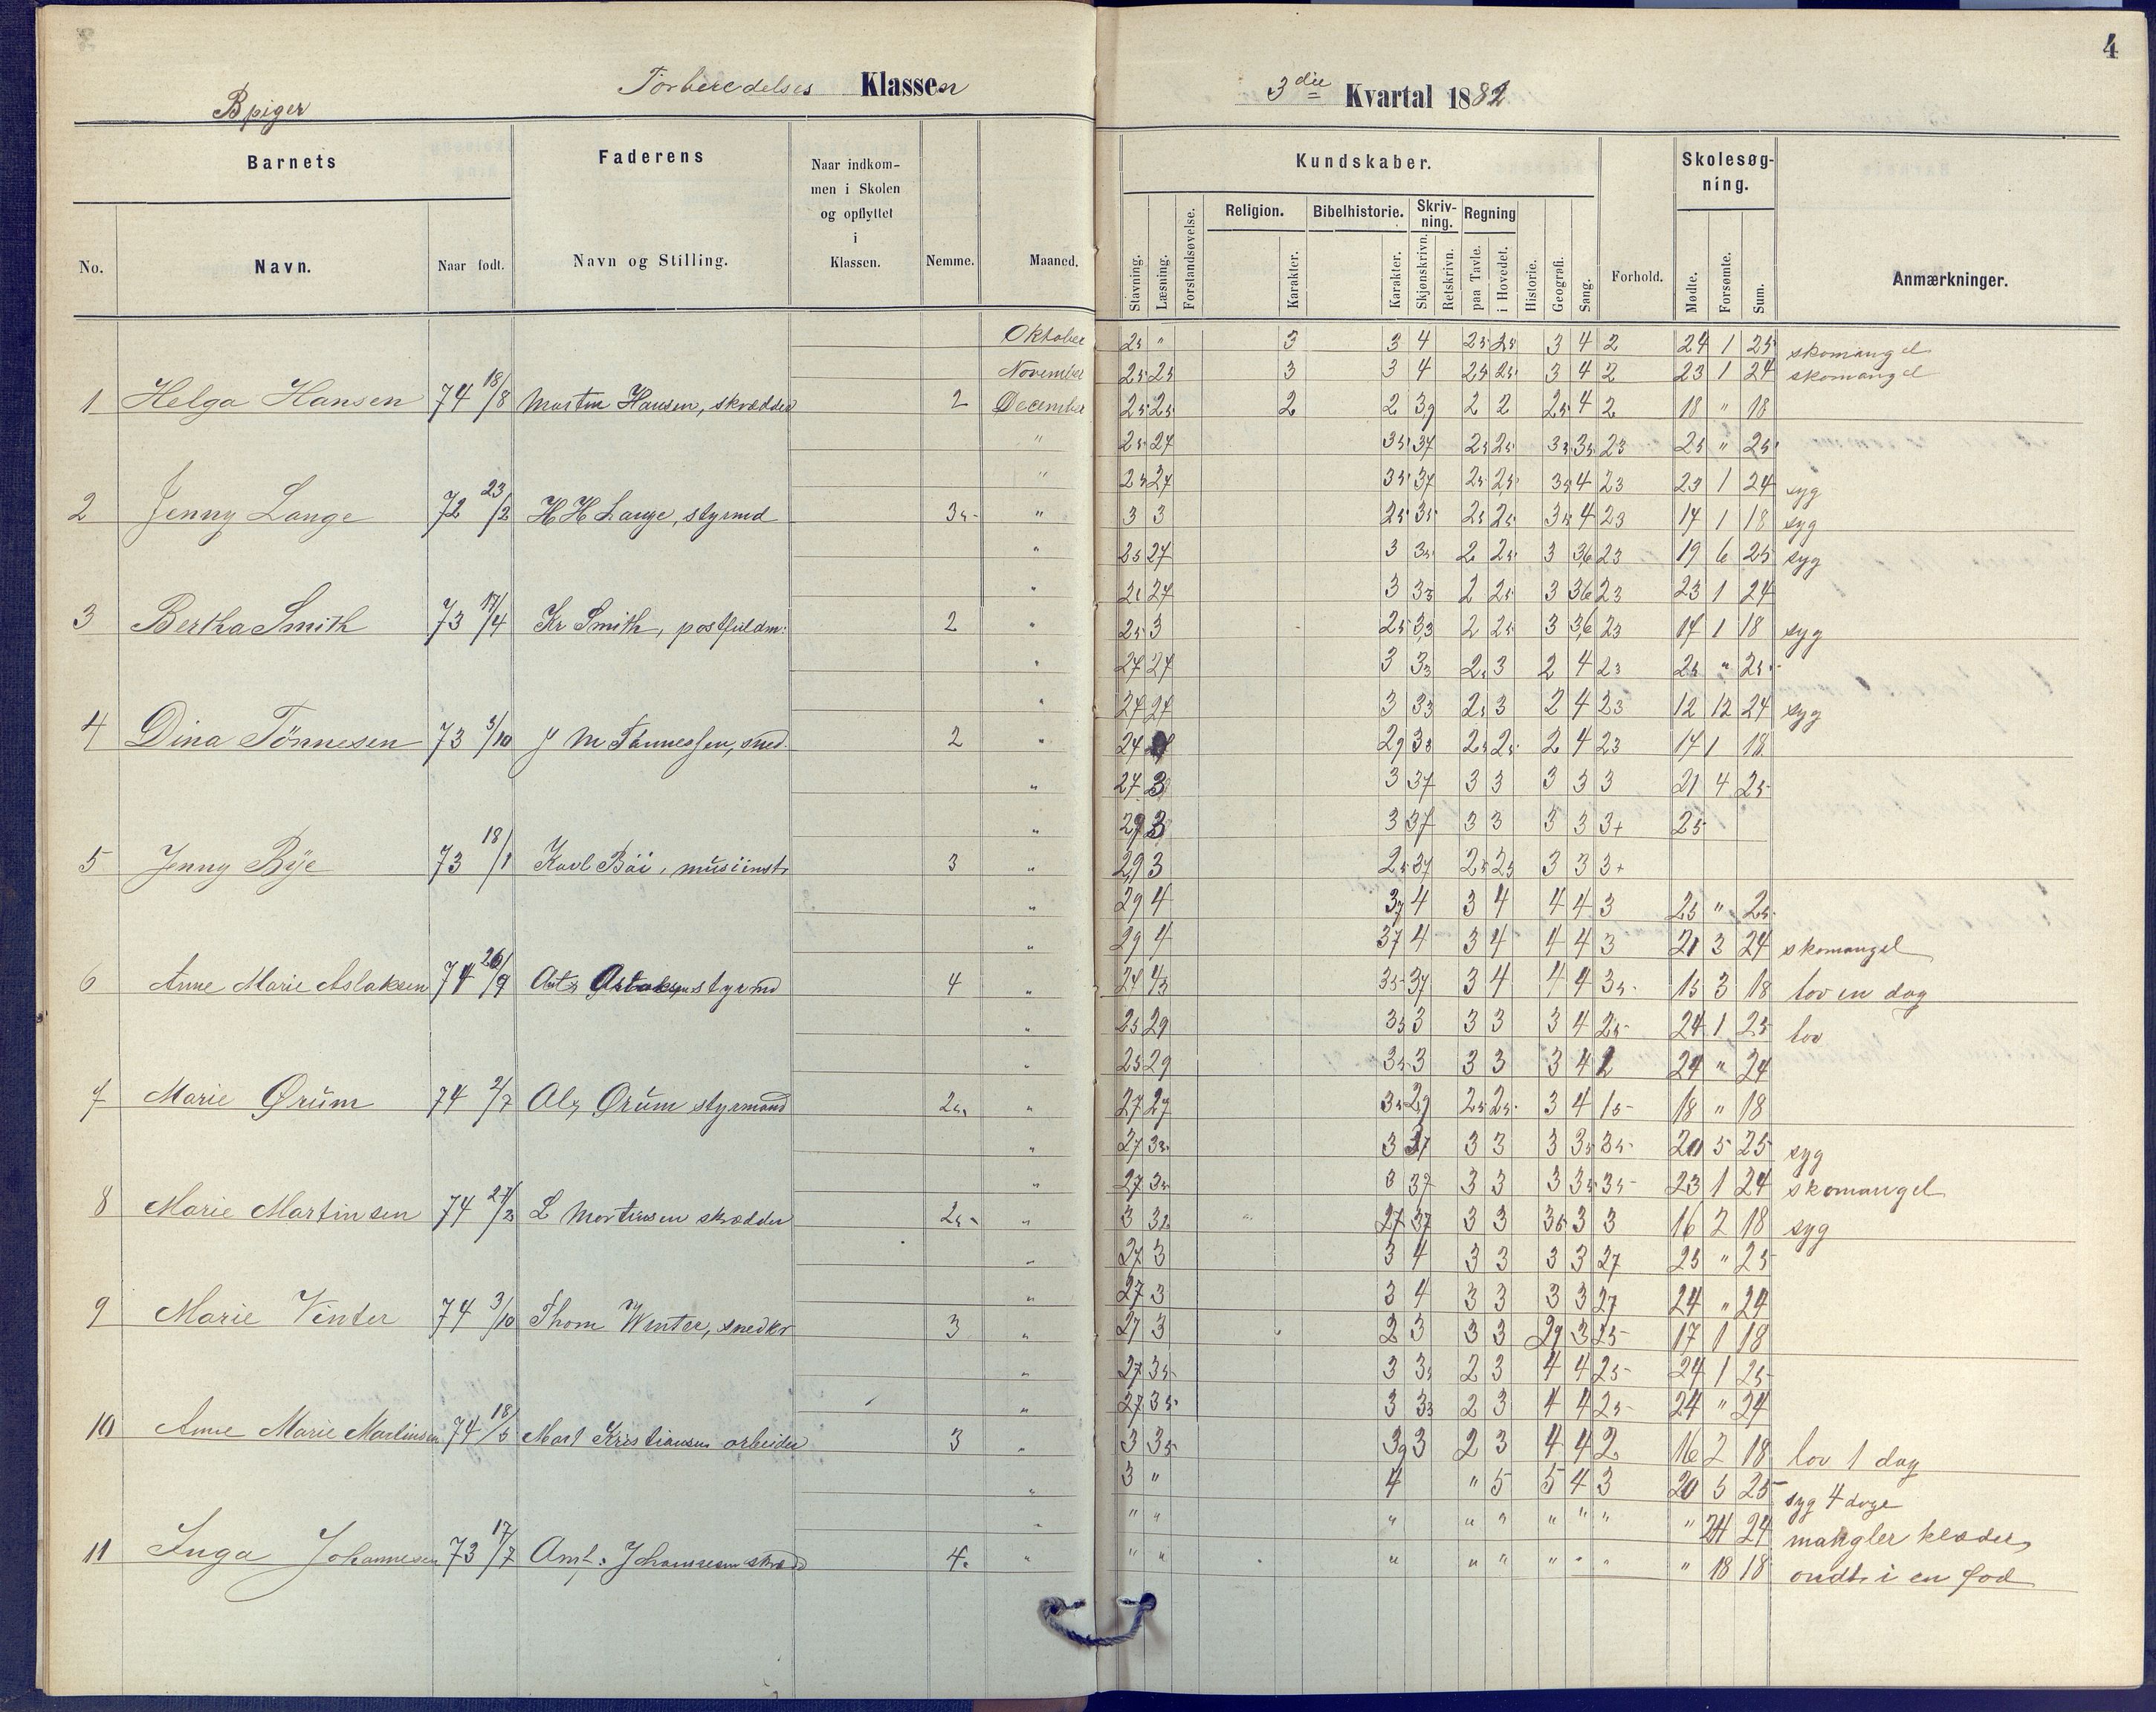 4
B piger
Forberedelses Klassen
3die Kvartal 1882
Barnets
Faderens
Naar indkom-
men i Skolen
og opflyttet
i
Klassen.
Kundskaber.
Skolesøg-
ning.
Religion. Bibelhistorie. Skriv-
ning. Regning
No. Navn. Naar født. Navn og Stilling. Nemme. Maaned. Stavning. Læsning. Forstandsøvelse. Karakter. Karakter. Skjønskrivn. Retskrivn. paa Tavle. i Hovedet. Historie. Geografi. Sang. Forhold. Mødte. Forsømte. Sum. Anmærkninger.
Oktober 25 " 3 3 4 25 25 3 4 2 24 1 25 skomangel
November 25 25 3 3 4 25 25 3 4 2 23 1 24 skomangel
1 Helga Hansen 74 18/8 Martin Hansen, skrædder 2 December 25 25 2 2 3,9 2 2 25 4 2 18 " 18
" 25 27 35 37 25 25 35 35 23 25 " 25
" 25 27 35 37 25 25 35 4 23 23 1 24 syg
2 Jenny Lange 72 23/2 H H Lange, styrmd 35 " 3 3 25 35 25 25 35 4 23 17 1 18 syg
" 25 27 3 35 2 25 3 36 23 19 6 25 syg
" 25 27 3 33 2 25 3 36 23 23 1 24
3 Bertha Smith 73 17/4 Kr Smith, postfuldm: 2 " 25 3 25 33 2 25 3 36 23 17 1 18 syg
" 27 27 3 33 25 3 2 4 23 25 " 25
" 27 27 3 33 25 3 2 4 23 12 12 24 syg
4 Dina Tönnesen 73 5/10 2 " 27 29 33 25 25 2 4 23 17 1 18
" 27 3 3 37 3 3 3 3 3 21 4 25
" 29 3 3 37 3 3 3 3 3+ 25
5 Jenny Bÿe 73 18/1 Karl Böi, musiinstr 3 " 29 3 25 37 25 25 3 3 3+
" 29 4 37 4 3 4 4 4 3 25 " 25
" 29 4 37 4 3 4 4 4 3 21 3 24 skomangel
6 Anne Marie Aslaksen 74 26/9 Aslaksen styrmd 4 " 27 43 35 37 3 4 4 4 35 15 3 18 lov en dag
" 25 29 35 3 3 3 3 4 25 24 1 25 lov
" 25 29 35 3 3 3 3 4 2 24 " 24
7 Marie Ørum 74 2/7 Ørum styrmand 25 " 27 27 35 29 25 25 3 4 15 18 " 18
" 27 35 3 37 3 3 3 35 35 20 5 25 syg
" 27 35 3 37 3 3 3 35 35 23 1 24 skomangel
8 Marie Martinsen 74 27/2 L Mortinsen skrædder 25 " 3 32 27 37 3 3 35 3 3 16 2 18 syg
" 27 3 3 4 3 3 3 3 27 25 " 25
" 27 3 3 4 3 3 3 3 27 24 " 24
9 Marie Vinter 74 3/10 Thom Winter, snedkr 3 " 27 3 2 3 3 3 29 3 25 17 1 18
" 27 35 3 35 2 3 4 4 25 24 1 25
" 27 35 3 33 2 3 4 4 25 24 " 24
10 Anne Marie Martinsen 74 18/5 Mart Kristiansen arbeider 3 " 3 35 39 3 2 3 4 4 2 16 2 18 lov 1 dag
" 3 " 4 " 5 5 4 3 20 5 25 syg 4 dage
" " " " " " " " " " 24 24 mangler klæder
11 Inga Johannesen 73 17/7 4 " " " " " " " " " " 18 18 ondt i en fod